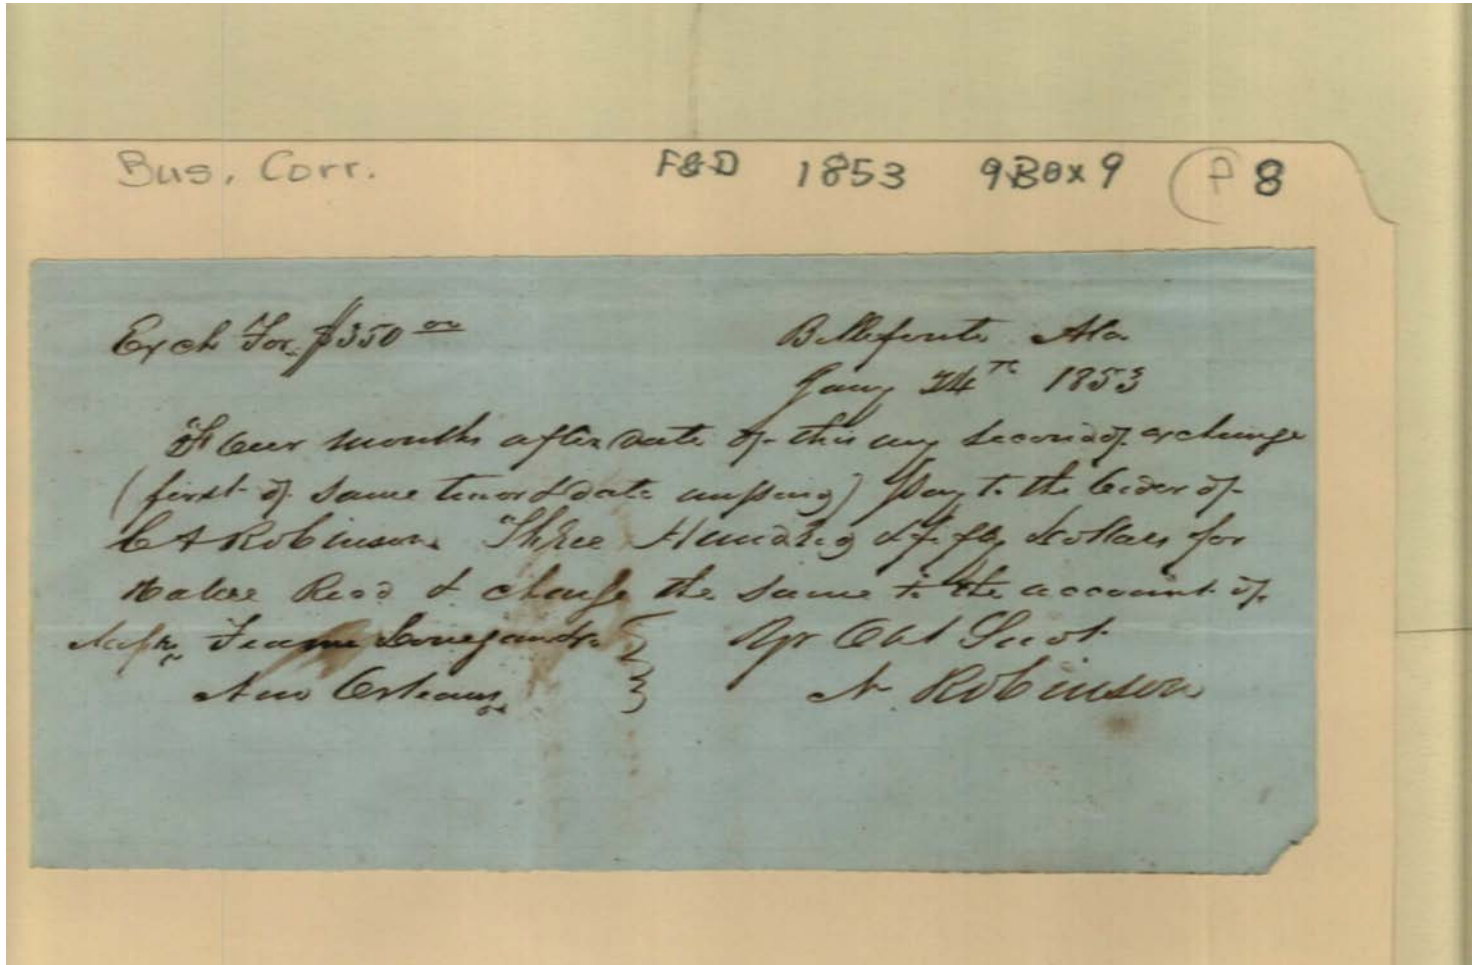 Bus. Corr. F&D 1853 9Box9 (P 8
Exch For $350 00 Bellefonte Ala
Jany 24th 1853
Four months after date of this my second of exchange
(first of same tenor & date unpaid) Pay to the order of
C A Robinson Three Hundred & fifty dollars for
Value Recd & charge the same to the account of
Messrs Fearne Donegan & Co Yr Obt Servt
New Orleans N. Robinson